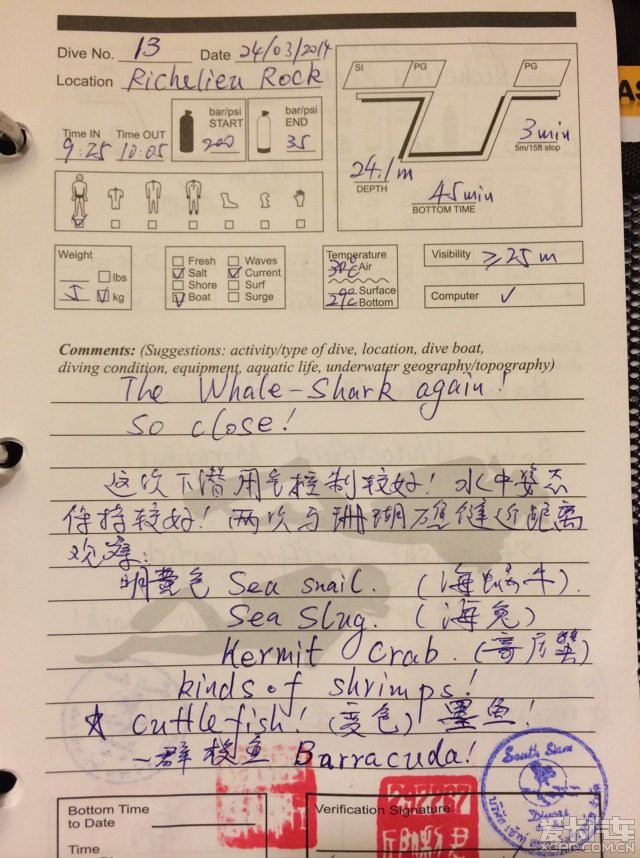 Dive No. 13 Date 24/03/2014
Location Richelieu Rock
SI PG PG
bar/psi START 200
bar/psi END 35
Time IN Time OUT
9:25 10:05
3 min
5m/15ft stop
24.1m
DEPTH
45min
BOTTOM TIME
Weight
lbs
5 kg
Fresh Waves
Salt Current
Shore Surf
Boat Surge
Temperature
30℃ Air
Surface
29℃ Bottom
Visibility ≥25m
Computer ✓
Comments: (Suggestions: activity/type of dive, location, dive boat,
diving condition, equipment, aquatic life, underwater geography/topography)
The Whale-Shark again!
So close!
这次下潜用气控制较好! 水中姿态
保持较好! 两次与珊瑚礁缝近距离
观察:
明黄色 Sea snail. (海蜗牛).
Sea Slug. (海兔)
Hermit Crab. (寄居蟹)
kinds of shrimps!
☆ cuttlefish! (变色) 墨鱼!
一群梭鱼 Barracuda!
South Siam
Divers
Bottom Time
to Date
Time
Verification Signature:
爱卡汽车
XCAR.COM.CN